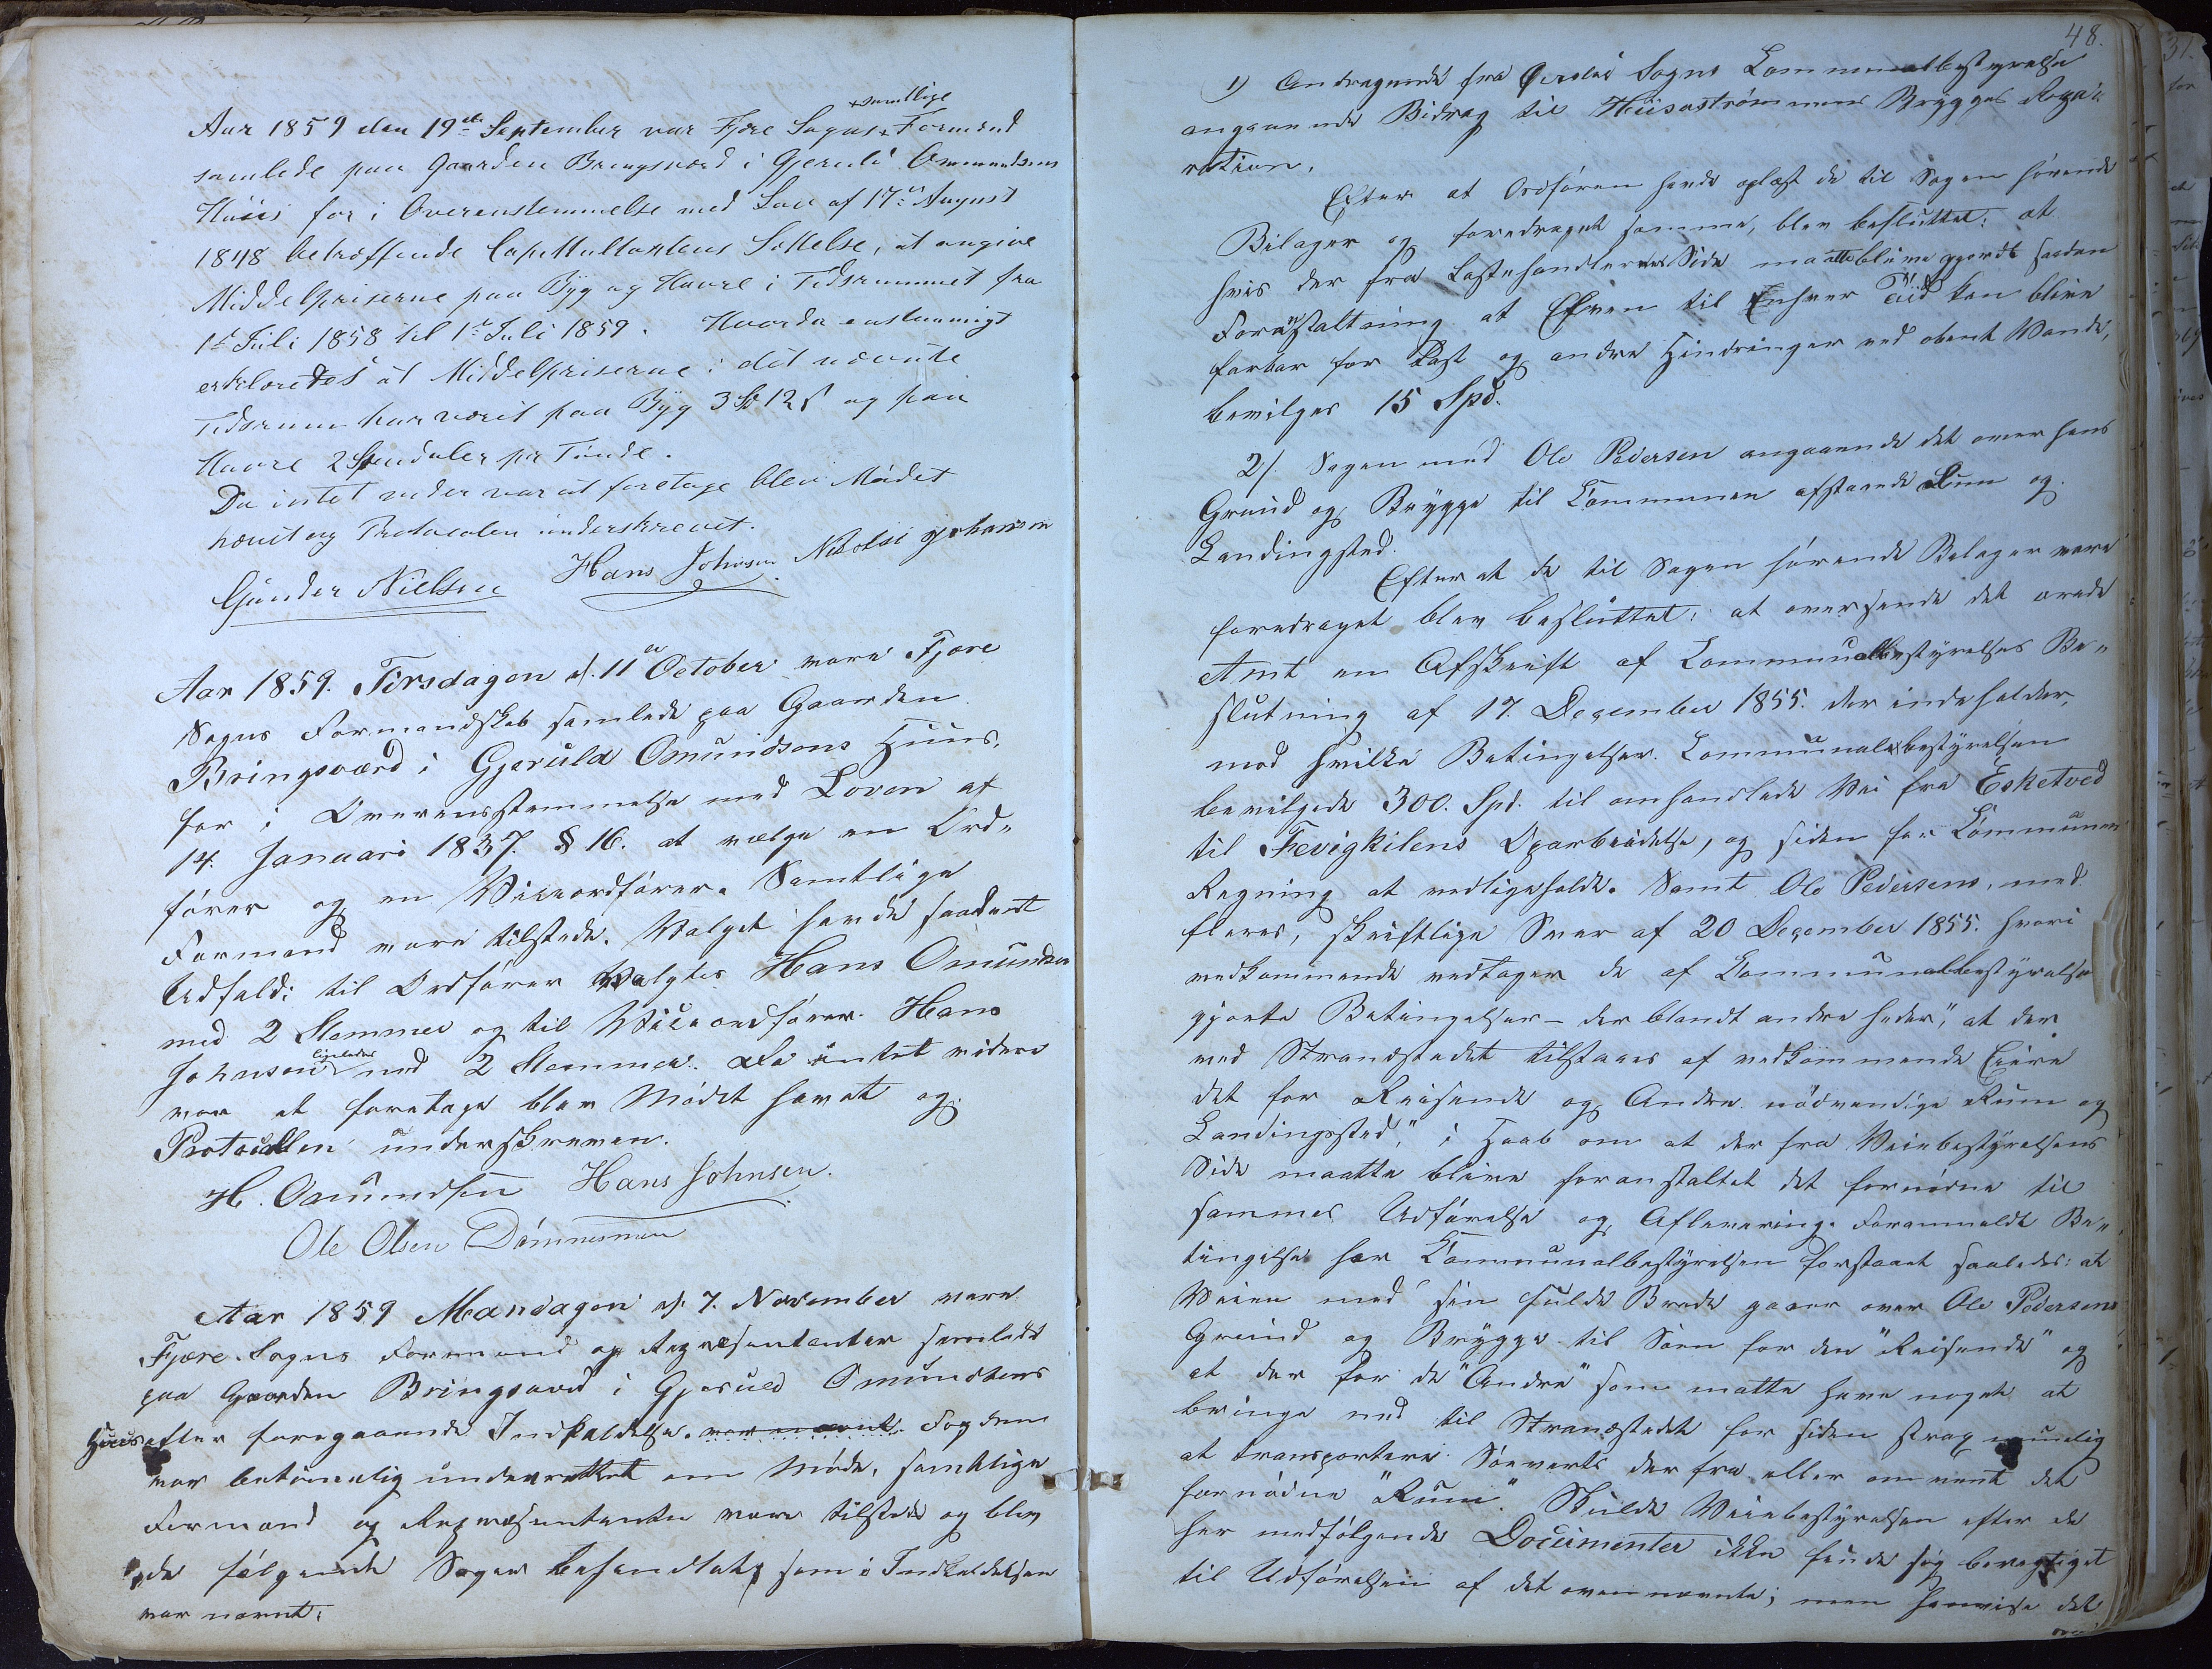 +samtlige
Aar 1859 den 19de September var Fjære Sogns + Formænd
samlede paa Gaarden Bringsværd i Gjeruld Ommundsens
Huus for i Overenstemmelse med Lov af 17de August
1848 betræffende Capittultaxtens Settelse, at angive
Middelpriserne paa Byg og Havre i Tidsrummet fra
1ste Juli 1858 til 1ste Juli 1859. Hvorda enstemmigt
erklæredes at Middelpriserne i det nævnte
Tidsrum har været paa Byg 3 Sp 12 s og paa
Havre 2 Spesidaler pr Tønde.
Da intet vider var at foretage blev Mødet
hævet og Protocolen underskrevet.
Gunder Nielsen Hans Johnsen Nikolai Johansen
Aar 1859. Tirsdagen d. 11te October vare Fjære
Sogns Formandskab samlede paa Gaarden
Bringsværd i Gjeruld Omundsens Huus,
for i Overensstemmelse med Loven af
14. Januari 1837. § 16. at vælge en Ord-
fører og en Viceordfører. Samtlige
Formænd vare tilstede. Valget havde saadant
Udfald: til Ordfører valgtes Hans Omundsen
med 2 Stemmer og til Viceordfører Hans
ligeledes
Johnsen med 2 Stemmer. Da intet videre
var at foretage blev Mødet hævet og
Protocollen underskreven.
H. Omundsen Hans Johnsen.
Ole Olsen Dømmesmoen
Aar 1859 Mandagen d. 7. November vare
Fjære Sogns Formænd og Repræsentanter samlede
paa Gaarden Bringsværd i Gjeruld Omundsens
Huus efter foregaaende Indkaldelse. var nævnt. Fogden
var betimelig underrettet om Møde, samtlige
Formænd og Repræsentanter vare tilstede og blev
da følgende Sager behandlet, som i Indkaldelsen
var nævnt:
48.
1) Andragende fra Øiestad Sogns Communalbestyrelse
angaaende Bidrag til Hüsestrømmens Brygges Repa-
ration.
Efter at Ordføren havde oplæst de til Sagen hørende
Bilager og foredraget samme, blev besluttet: at
hvis der fra Lastehandlernes Side maatte blive gjordt saadan
Foranstaltning at Elven til Enhver Tiid kan blive
farbar for Last og andre Hindringer ved abent Vande,
bevilges 15 Spd.
2). Sagen med Ole Pedersen angaaende det over hans
Grund og Brygge til Communen afstaaede Rum og
Landingsted.
Efter at de til Sagen hørende Belager vare
foredraget blev besluttet: at oversende det ærede
Amt en Afskrift af Communalbestyrelses Be-
slutning af 17. December 1855. der indeholder,
mod hvilke Betingelser Communalbestyrelsen
bevilgede 300. Spd. til omhandlede Vei fra Esketved
til Fevigkilens Oparbeidelse, og siden for Communens
Regning at vedligeholde. Samt Ole Pedersens, med
fleres, skriftlige Svar af 20 December 1855. hvori
vedkommende vedtager de af Communalbestyrelsen
gjorte Betingelser – der blandt andre heder, "at der
ved Strandstedet tilstaaes af vedkommende Eiere
det for Reisende og Andre nødvendige Rum og
Landingssted," i Haab om at der fra Veiebestyrelsens
Side maatte blive foranstaltet det fornødne til
sammes Udførelse og Aflevering. Foranmeldt Be-
tingelse har Communalbestyrelsen forstaaet saaledes: at
Veien med sin fulde Brede gaaer over Ole Pedersens
Grund og Brygge til Søen for den "Reisende" og
at der for de "Andre" som matte have noget at
bringe ned til Strandstedet for siden strax muelig
at transportere Søeværts der fra eller omvent det
fornødne "Rum". Skulde Veiebestyrelsen efter de
her medfølgende Documenter ikke finde sig berægtiget
til Udførelsen af det ovennævnte; men henvise det